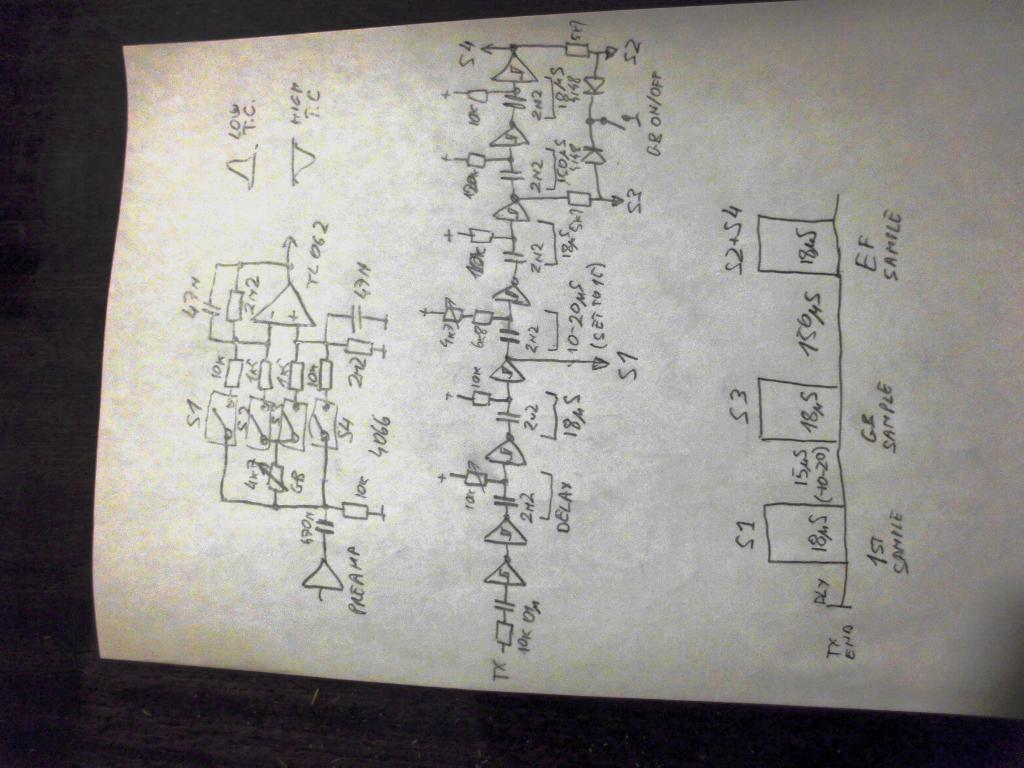 LOW
T.C.
HIGH
T.C.
47N
2M2
TLO62
S1
10K
S2
1K5
4K7
GB
1K5
S4
10K
2M2
47N
4066
470N
10K
PREAMP
TX
10K
2N2
DELAY
10K
2N2
18µS
10K
S1
4K7
6K8
2N2
10-20µS
(SET TO 15)
2N2
18µS
5K1
S3
120K
2N2
150µS
4148
10K
2N2
18µS
4148
S4
S2
GB ON/OFF
S1
S3
S2+S4
TX
END
DLY
18µS
15µS
(10-20)
18µS
150µS
18µS
1ST
SAMPLE
GB
SAMPLE
EF
SAMPLE